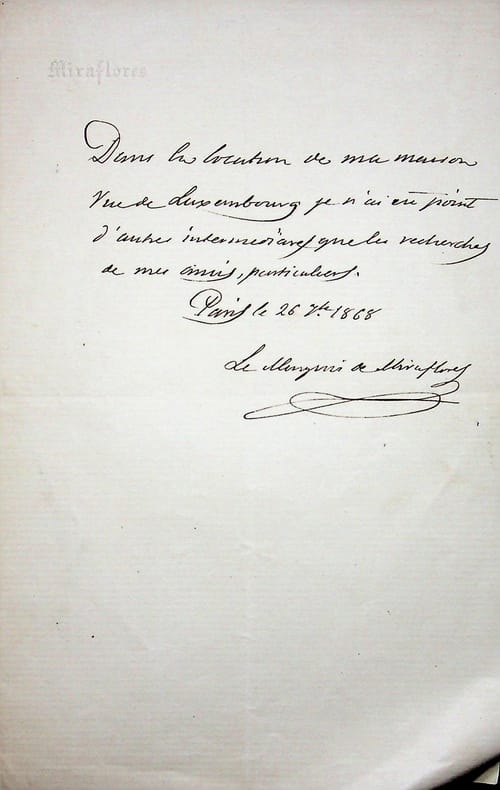 Miraflores
Dans la location de ma maison
Rue de Luxembourg je n'ai eu point
d'autres intermediares que les recherches
de mes amis, particuliers.
Paris le 26 7bre 1868
Le Marquis de Miraflores